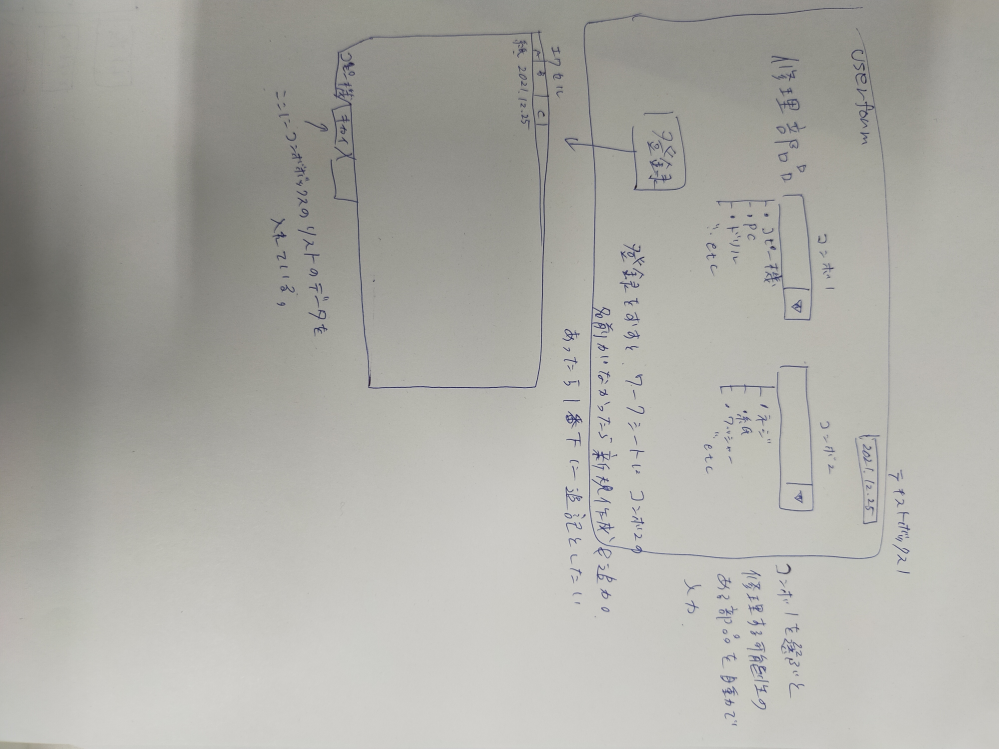 userform
修理部品
テキストボックス1
2021.12.25
コンボ1
コンボ2
・コピー機
・PC
・ドリル
etc
・ネジ
・ワッシャー
etc
登録
コンボ1を選ぶと
修理する可能性の
ある部品を自動で
入力
登録をおすと、ワークシートに コンボ2の
名前がなかったら新規作成
あったら1番下に追記としたい
エクセル
A B C
2021.12.25
コピー機
ここにコンボボックスのリストのデータを
入れている。